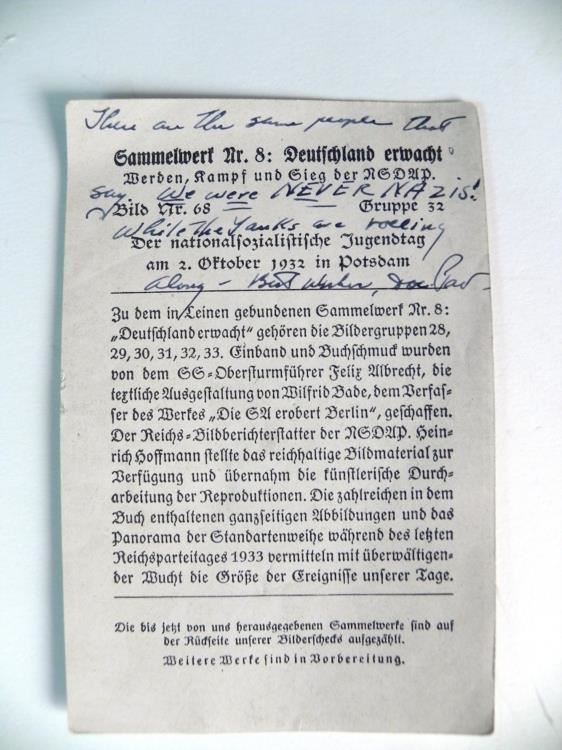 These are the same people that
Sammelwerk Nr. 8: Deutschland erwacht
Werden, Kampf und Sieg der NSDAP.
say. We were NEVER NAZIS!
Bild Nr. 68 Gruppe 32
While the Yanks are rolling
Der nationalsozialistische Jugendtag
am 2. Oktober 1932 in Potsdam
along – Best Wishes,
Zu dem in Leinen gebundenen Sammelwerk Nr. 8:
„Deutschland erwacht“ gehören die Bildergruppen 28,
29, 30, 31, 32, 33. Einband und Buchschmuck wurden
von dem SS-Obersturmführer Felix Albrecht, die
textliche Ausgestaltung von Wilfrid Bade, dem Verfas-
ser des Werkes „Die SA erobert Berlin“, geschaffen.
Der Reichs-Bildberichterstatter der NSDAP. Hein-
rich Hoffmann stellte das reichhaltige Bildmaterial zur
Verfügung und übernahm die künstlerische Durch-
arbeitung der Reproduktionen. Die zahlreichen in dem
Buch enthaltenen ganzseitigen Abbildungen und das
Panorama der Standartenweihe während des letzten
Reichsparteitages 1933 vermitteln mit überwältigen-
der Wucht die Größe der Ereignisse unserer Tage.
Die bis jetzt von uns herausgegebenen Sammelwerke sind auf
der Rückseite unserer Bilderschecks aufgezählt.
Weitere Werke sind in Vorbereitung.